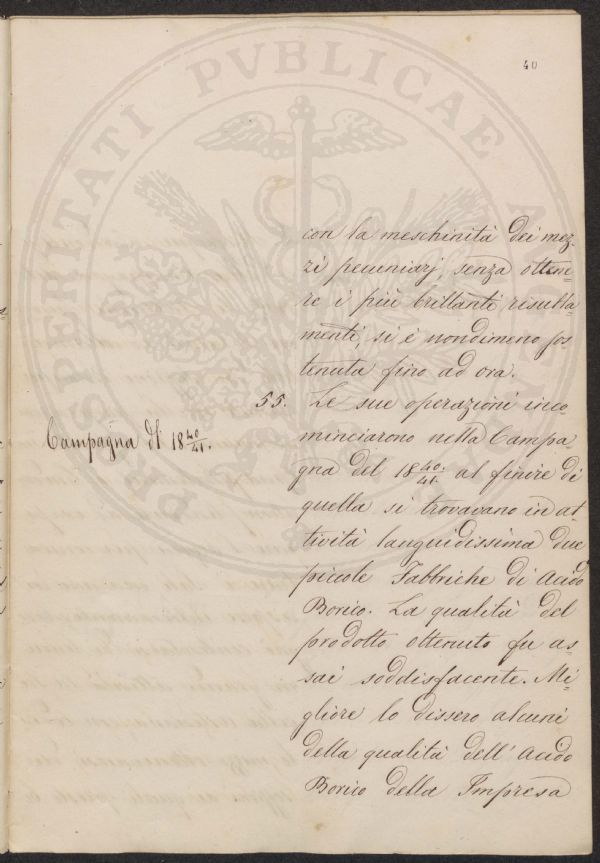 40
con la meschinità dei mez-
zi pecuniarj, senza ottene-
re i più brillanti resulta-
menti, si è nondimeno sos
tenuta fino ad ora.
55. Le sue operazioni inco-
Campagna dl 18 40/41.
minciarono nella Campa
gna del 18 40/41. al finire di
quella si trovavano in at
tività languidissima due
piccole Fabbriche di Acido
Borico. La qualità del
prodotto ottenuto fu as-
sai soddisfacente. Mi-
gliore lo dissero alcuni
della qualità dell' Acido
Borico della Impresa
PROSPERITATI PVBLICAE